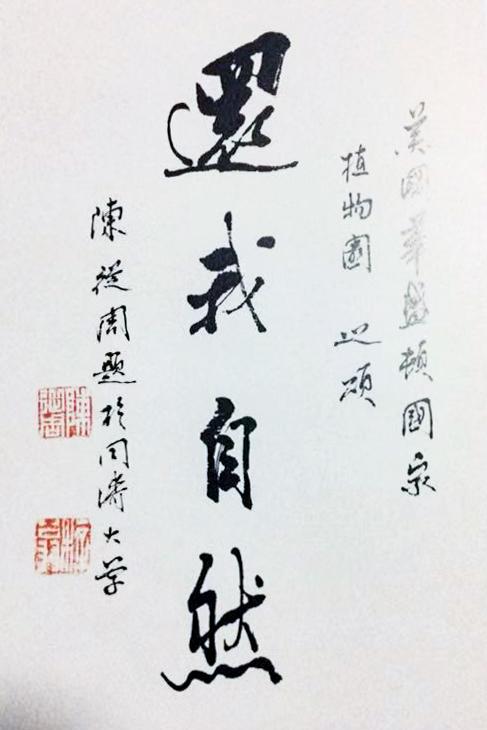 美國華盛頓國家
植物園 之頌
還我自然
陳從周題於同濟大学